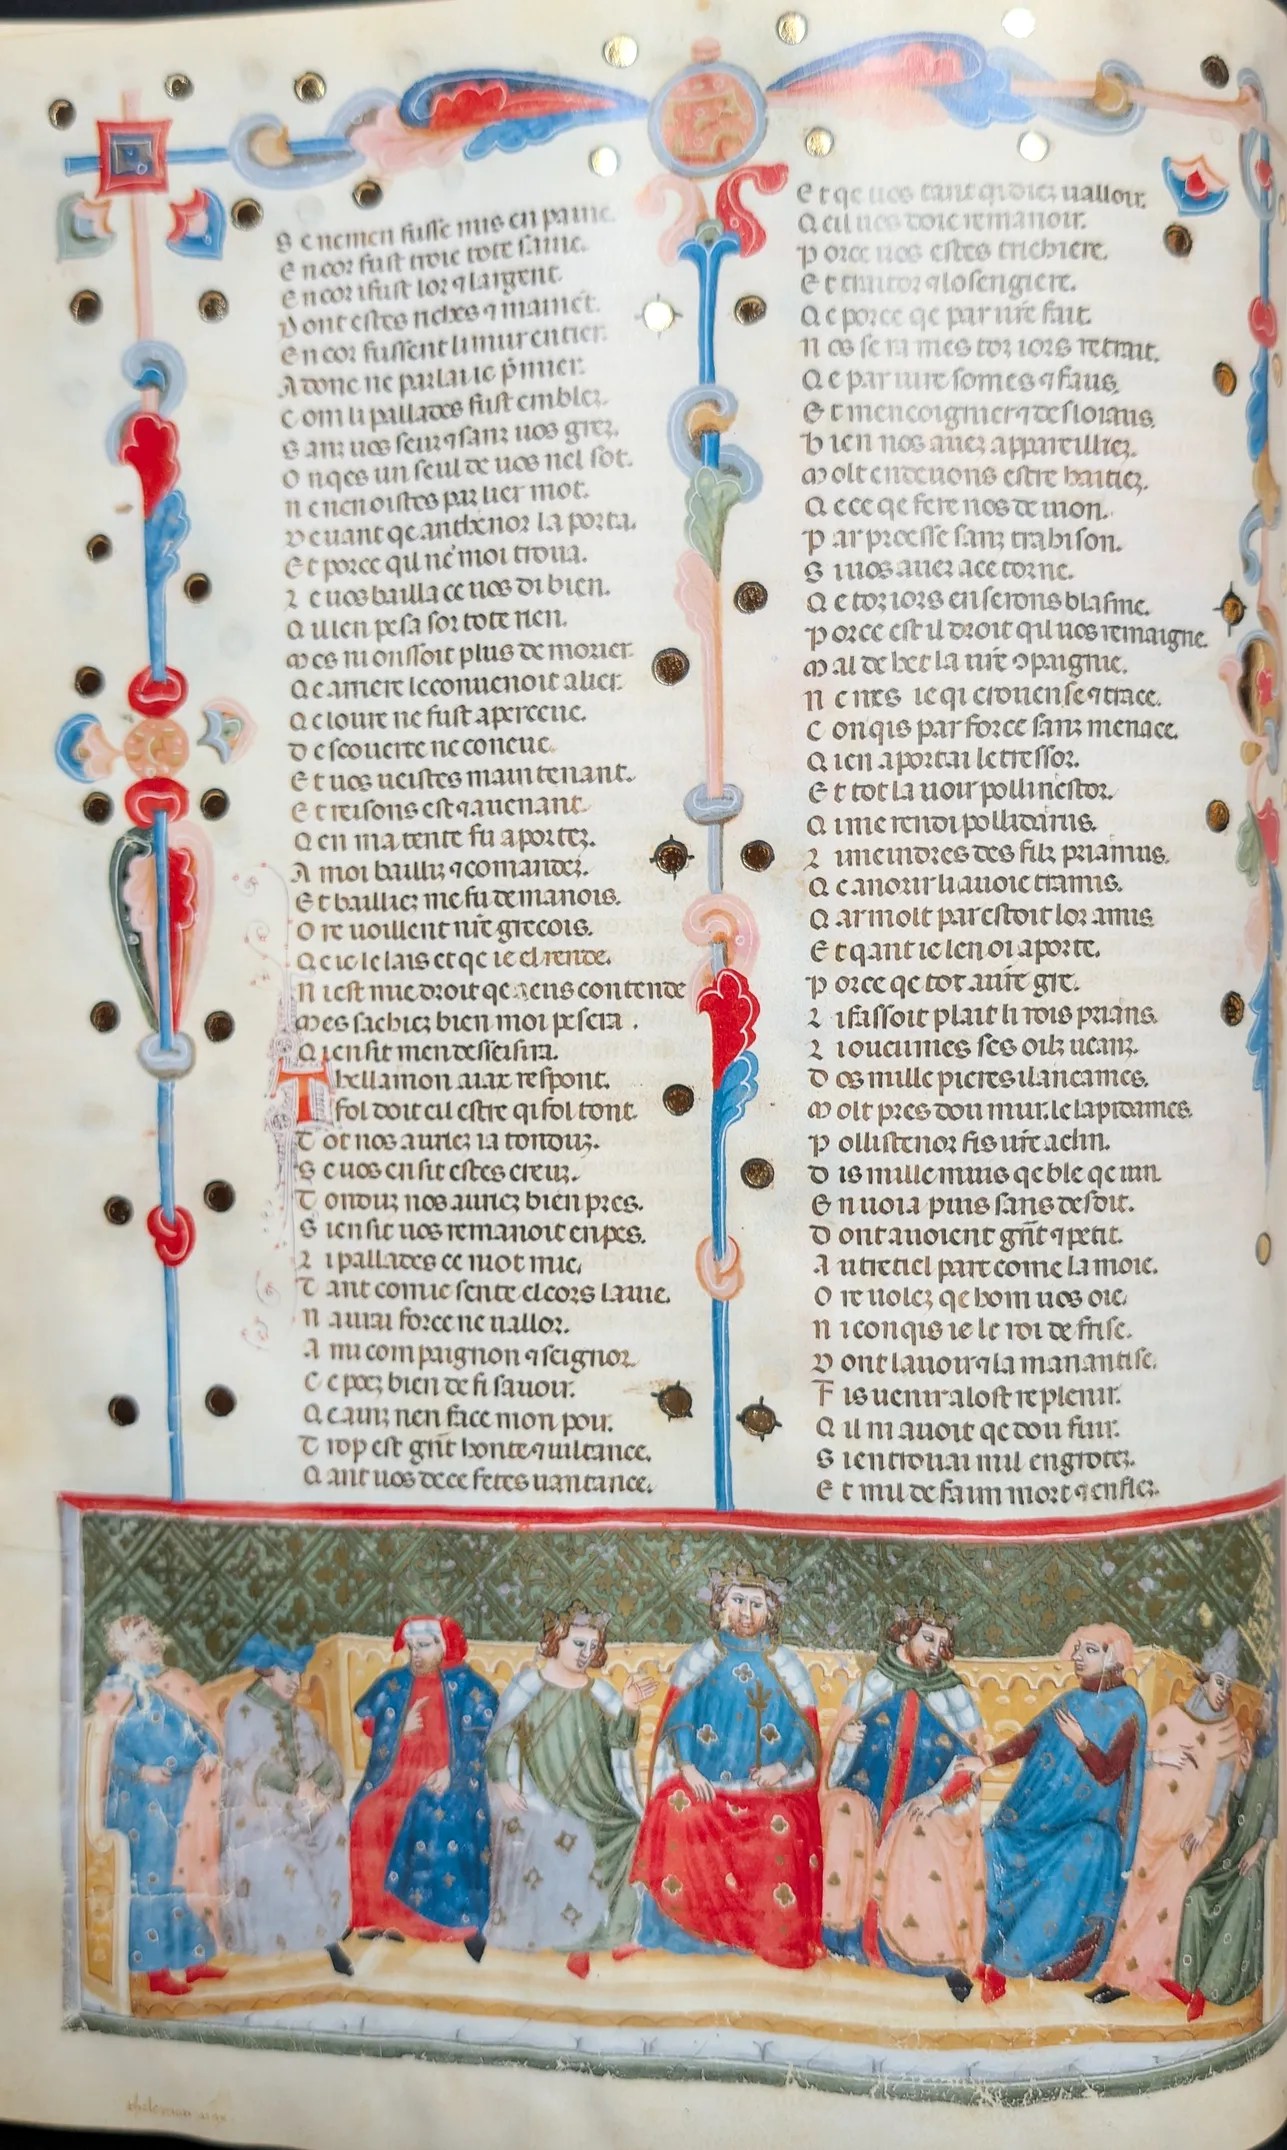 S e nemen fusse mis en paine.
E ncor fust troie tote saine.
E ncor i fust lor ⁊ largent.
D ont estes riches ⁊ mainet.
E ncor fussent li mur entier.
A donc ne parlai ie p̄mier.
C om li pallades fust emblez.
S anz uos seu ⁊ sanz uos grez.
O nqes un seul de uos nel sot.
N e nen oistes parlier mot.
D euant qe anthenor la porta.
E t porce qil ne moi troua.
L e uos bailla ce uos di bien.
Q uien pesa sor tote rien.
M es ni onssoit plus demorier.
Q e arriere le conuenoit alier.
Q e loure ne fust aperceue.
D escouerte ne coneue.
E t uos ueistes maintenant.
E t reisons est ⁊ auenant.
Q en ma tente fu aportez.
A moi bailliz ⁊ comandez.
E t bailliez me fu demanois.
O re uoillent nr̄e grecois.
Q e ie le lais et qe ie el rende.
N i est mie droit qe a eus contende
M es sachiez bien moi pesera .
Q ien sit men desseisira.
T hellamon aiax respont.
fol doit cil estre qi fol tont.
T ot nos auriez ia tonduz.
S e uos ensit estes creuz.
T onduz nos auriez bien pres.
S iensit uos remanoit en pes.
L i pallades ce niot mie,
T ant comie sente el cors la uie.
N aurai force ne uallor.
A mi compaignon ⁊ seignor
C e poez bien de fi sauoir.
Q e auiz nen face mon poir.
T rop est gr̄nt honte ⁊ uiltance.
Q ant uos de ce fetes uantance.
E t qe uos tant qidiez ualloir.
Q cil uos doie remanoir.
P orce uos estes trichiere.
E t traitor ⁊ losengiere.
Q e porce qe par ur̄e fait.
N os sera mes toz iors retrait.
Q e pariure somes ⁊ faus.
E t mencoignier ⁊ desloiaus.
B ien nos auez appareilliez.
M olt en deuons estre haitiez.
Q e ce qe fere nos de mon.
P ar proesse sanz trahison.
S i uos auez a ce torne.
Q e toz iors en serons blasme.
P orce est il droit qil uos remaigne.
M al dehet la ur̄e ɔpaignie.
N e nes ie qi crouense ⁊ trace.
C onqis par force sanz menace.
Q ien aportai le tressor.
E t tot lauoir pollinestor.
Q i me rendi pollidarius.
L i meindres des filz priamus.
Q e a norir li auoit tramis.
Q ar molt par estoit lor amis
E t qant ie len oi aporte.
P orce qe tot a ur̄e gre.
L i fassoit plait li rois prians.
L i oucimes ses oilz ueanz.
D es mille pieres i lancames.
M olt pres dou mur. le lapidames.
P ollistenor fis ur̄e aclin.
D is mille muis qe ble qe uin.
E nuoia puis sans desoit.
D ont auoient gr̄nt ⁊ petit.
A utretiel part come la moie.
O re uolez qe hom uos oie.
N i conqis ie le roi de frise.
D ont lauoir ⁊ la manantise.
F is uenir alost replenir.
Q il ni auoit qe dou fuir.
S i en trouai mil engrotez.
E t mil de faim mort ⁊ enflez.